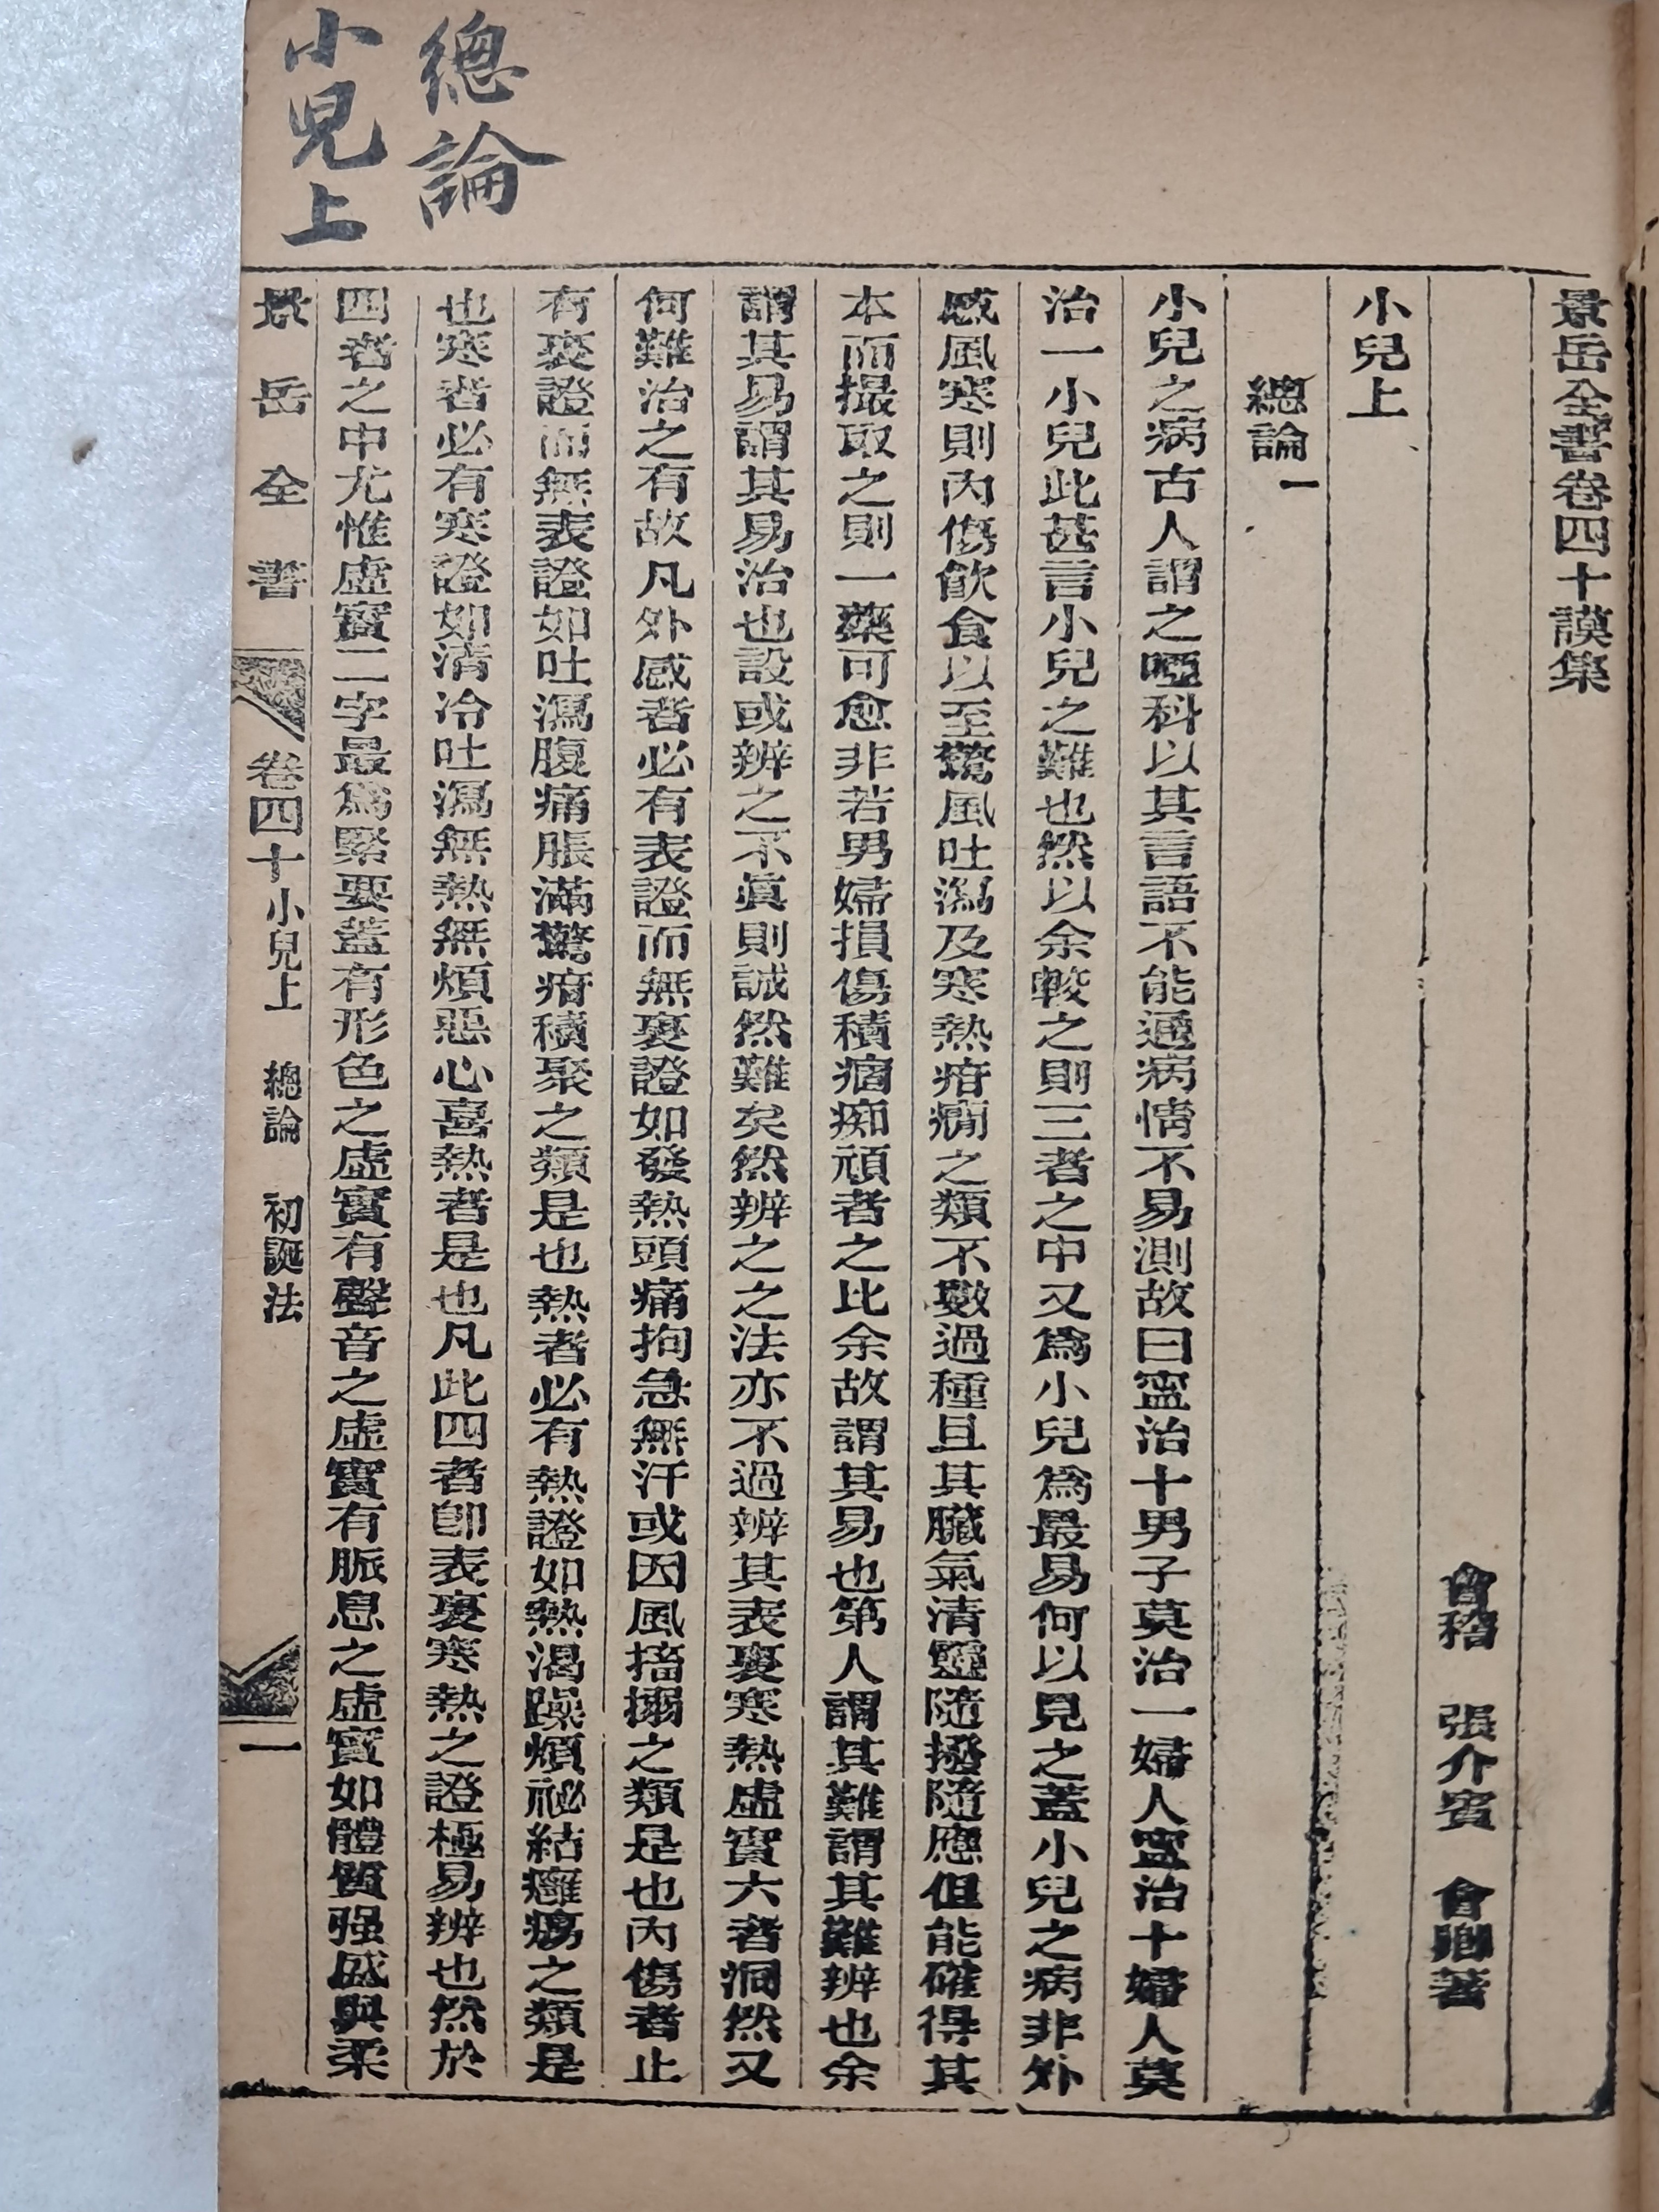 總論
小兒上
景岳全書卷四十謨集
會稽 張介賓 會卿著
小兒上
總論一
小兒之病古人謂之啞科以其言語不能通病情不易測故曰寧治十男子莫治一婦人寧治十婦人莫
治一小兒此甚言小兒之難也然以余較之則三者之中又爲小兒爲最易何以見之蓋小兒之病非外
感風寒則內傷飲食以至驚風吐瀉及寒熱疳癇之類不數過種且其臟氣清靈隨撥隨應但能確得其
本而撮取之則一藥可愈非若男婦損傷積痼痴頑者之比余故謂其易也第人謂其難謂其難辨也余
謂其易謂其易治也設或辨之不眞則誠然難矣然辨之之法亦不過辨其表裏寒熱虛實六者洞然又
何難治之有故凡外感者必有表證而無裏證如發熱頭痛拘急無汗或因風搐搦之類是也內傷者止
有裏證而無表證如吐瀉腹痛脹滿驚疳積聚之類是也熱者必有熱證如熱渴躁煩祕結癰瘍之類是
也寒者必有寒證如清冷吐瀉無熱無煩惡心喜熱者是也凡此四者卽表裏寒熱之證極易辨也然於
四者之中尤惟虛實二字最爲緊要蓋有形色之虛實有聲音之虛實有脈息之虛實如體質强盛與柔
景岳全書 卷四十 小兒上 總論 初誕法 一